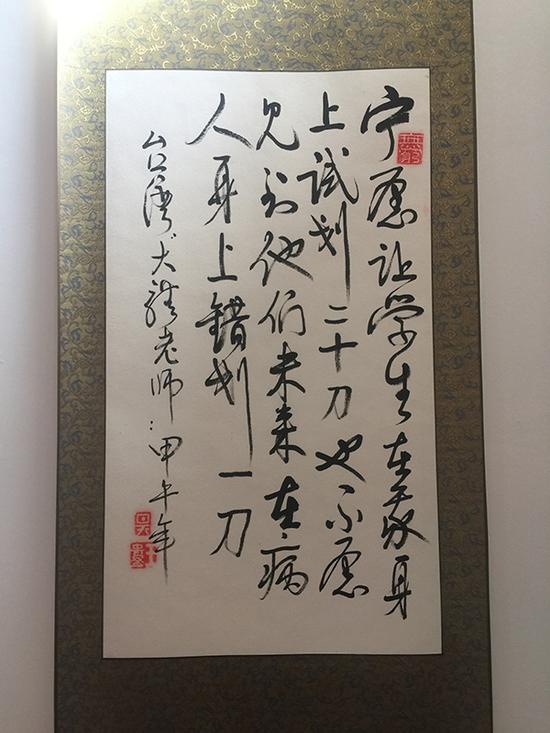 宁愿让学生在我身
上试划二十刀也不愿
见到他们未来在病
人身上错划一刀
台湾大体老师：甲午年